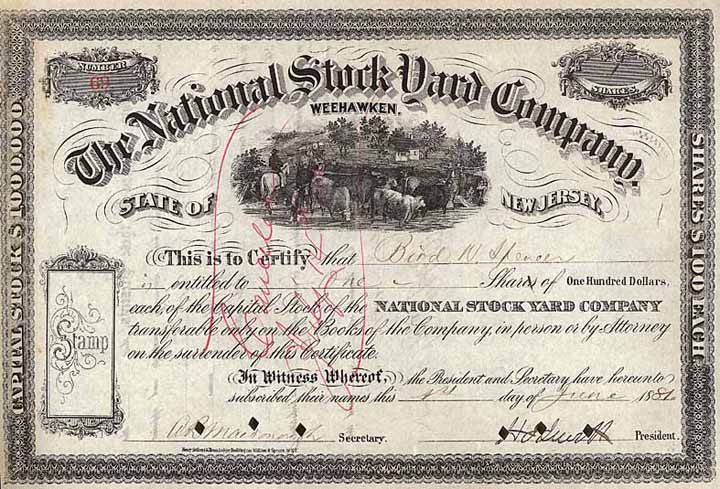 NUMBER
SHARES.
The National Stock Yard Company,
WEEHAWKEN.
STATE OF NEW JERSEY.
CAPITAL STOCK $1000.000
SHARES $100 EACH
This is to Certify that Bird W. Spencer
is entitled to One Shares of One Hundred Dollars,
each, of the Capital Stock of the NATIONAL STOCK YARD COMPANY
transferable only on the Books of the Company, in person or by Attorney
on the surrender of this Certificate.
Stamp
In Witness Whereof, the President and Secretary have hereunto
subscribed their names this day of June 1881
Secretary. President.